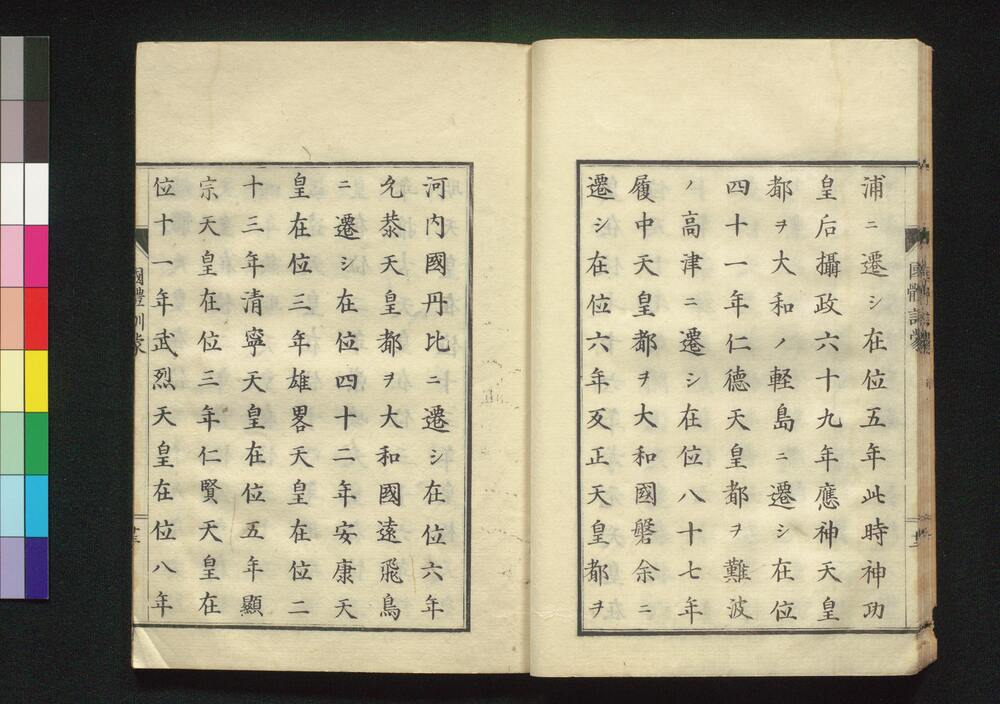 浦ニ遷シ在位五年此時神功
皇后攝政六十九年應神天皇
都ヲ大和ノ軽島ニ遷シ在位
四十一年仁德天皇都ヲ難波
ノ高津ニ遷シ在位八十七年
履中天皇都ヲ大和國磐余ニ
遷シ在位六年反正天皇都ヲ
國體訓蒙
河内國丹比ニ遷シ在位六年
允恭天皇都ヲ大和國遠飛鳥
ニ遷シ在位四十二年安康天
皇在位三年雄畧天皇在位二
十三年清寧天皇在位五年顯
宗天皇在位三年仁賢天皇在
位十一年武烈天皇在位八年
國體訓蒙